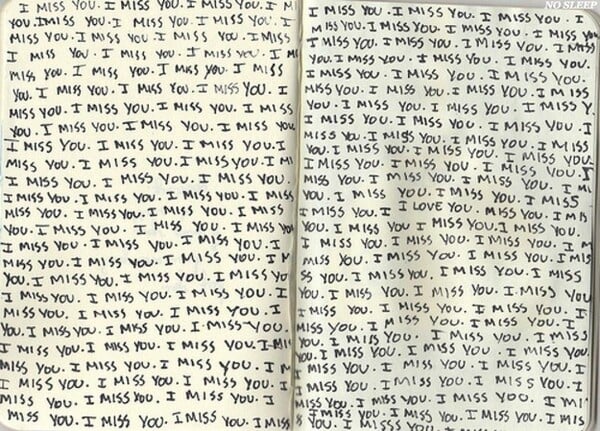 NO SLEEP
I MISS YOU. I MISS YOU. I MISS YOU. I
YOU. I MISS YOU. I MISS YOU. I M
MISS YOU. I MISS YOU. I MISS YOU. I
I MISS YOU. I MISS YOU. I MISS YOU. I M
MISS YOU. I MISS YOU. I MISS YOU. I MISS
YOU. I MISS YOU. I MISS YOU. I MISS YOU. I
YOU. I MISS YOU. I MISS YOU. I MISS
YOU. I MISS YOU. I MISS YOU. I MISS YOU
I MISS YOU. I MISS YOU. I MISS YOU. I
MISS YOU. I MISS YOU. I MISS YOU. I MI
I MISS YOU. I MISS YOU. I MISS YOU. I
I MISS YOU. I MISS YOU. I MISS YOU. I MISS
MISS YOU. I MISS YOU. I MISS YOU. I MISS
YOU. I MISS YOU. I MISS YOU. I MISS YOU.
I MISS YOU. I MISS YOU. I MISS YOU. I
MISS YOU. I MISS YOU. I MISS YOU. I MISS
YOU. I MISS YOU. I MISS YOU. I MISS YO
I MISS YOU. I MISS YOU. I MISS YOU. I
MISS YOU. I MISS YOU. I MISS YOU. I
YOU. I MISS YOU. I MISS YOU. I MISS YOU.
I MISS YOU. I MISS YOU. I MISS YOU. I MIS
MISS YOU. I MISS YOU. I MISS YOU. I M
I MISS YOU. I MISS YOU. I MISS YOU. I
MISS YOU. I MISS YOU. I MISS YOU. I
MISS YOU. I MISS YOU. I MISS YOU. I MISS
I MISS YOU. I MISS YOU. I MISS YOU. I
MISS YOU. I MISS YOU. I MISS YOU. I MISS YOU
I MISS YOU. I MISS YOU. I MISS YOU. I MISS
YOU. I MISS YOU. I MISS YOU. I MISS YOU. I
I MISS YOU. I MISS YOU. I MISS YOU.
MISS YOU. I MISS YOU. I MISS YOU. I MISS
YOU. I MISS YOU. I MISS YOU. I MISS Y
I MISS YOU. I MISS YOU. I MISS YOU. I
MISS YOU. I MISS YOU. I MISS YOU. I MISS
YOU. I MISS YOU. I MISS YOU. I MISS YOU
I MISS YOU. I MISS YOU. I MISS YOU. I
MISS YOU. I MISS YOU. I MISS YOU. I MI
YOU. I MISS YOU. I MISS YOU. I MISS
I MISS YOU. I I LOVE YOU. MISS YOU. I MIS
YOU. I MISS YOU. I MISS YOU. I MISS YOU.
I MISS YOU. I MISS YOU. I MISS YOU. I M
MISS YOU. I MISS YOU. I MISS YOU. I MI
SS YOU. I MISS YOU. I MISS YOU. I MISS
YOU. I MISS YOU. I MISS YOU. I MISS YOU
I MISS YOU. I MISS YOU. I MISS YOU. I
MISS YOU. I MISS YOU. I MISS YOU. I
YOU. I MISS YOU. I MISS YOU. I MISS
YOU. I MISS YOU. I MISS YOU. I MISS YOU.
I MISS YOU. I MISS YOU. I MISS YOU. I MISS
I MISS YOU. I MISS YOU. I MISS YOU. I
MISS YOU. I MISS YOU. I MISS YOU. I MI
I MISS YOU. I MISS YOU. I MISS YOU. I MIS
YOU. I MISS YOU. I MISS YOU. I MISS YOU. I